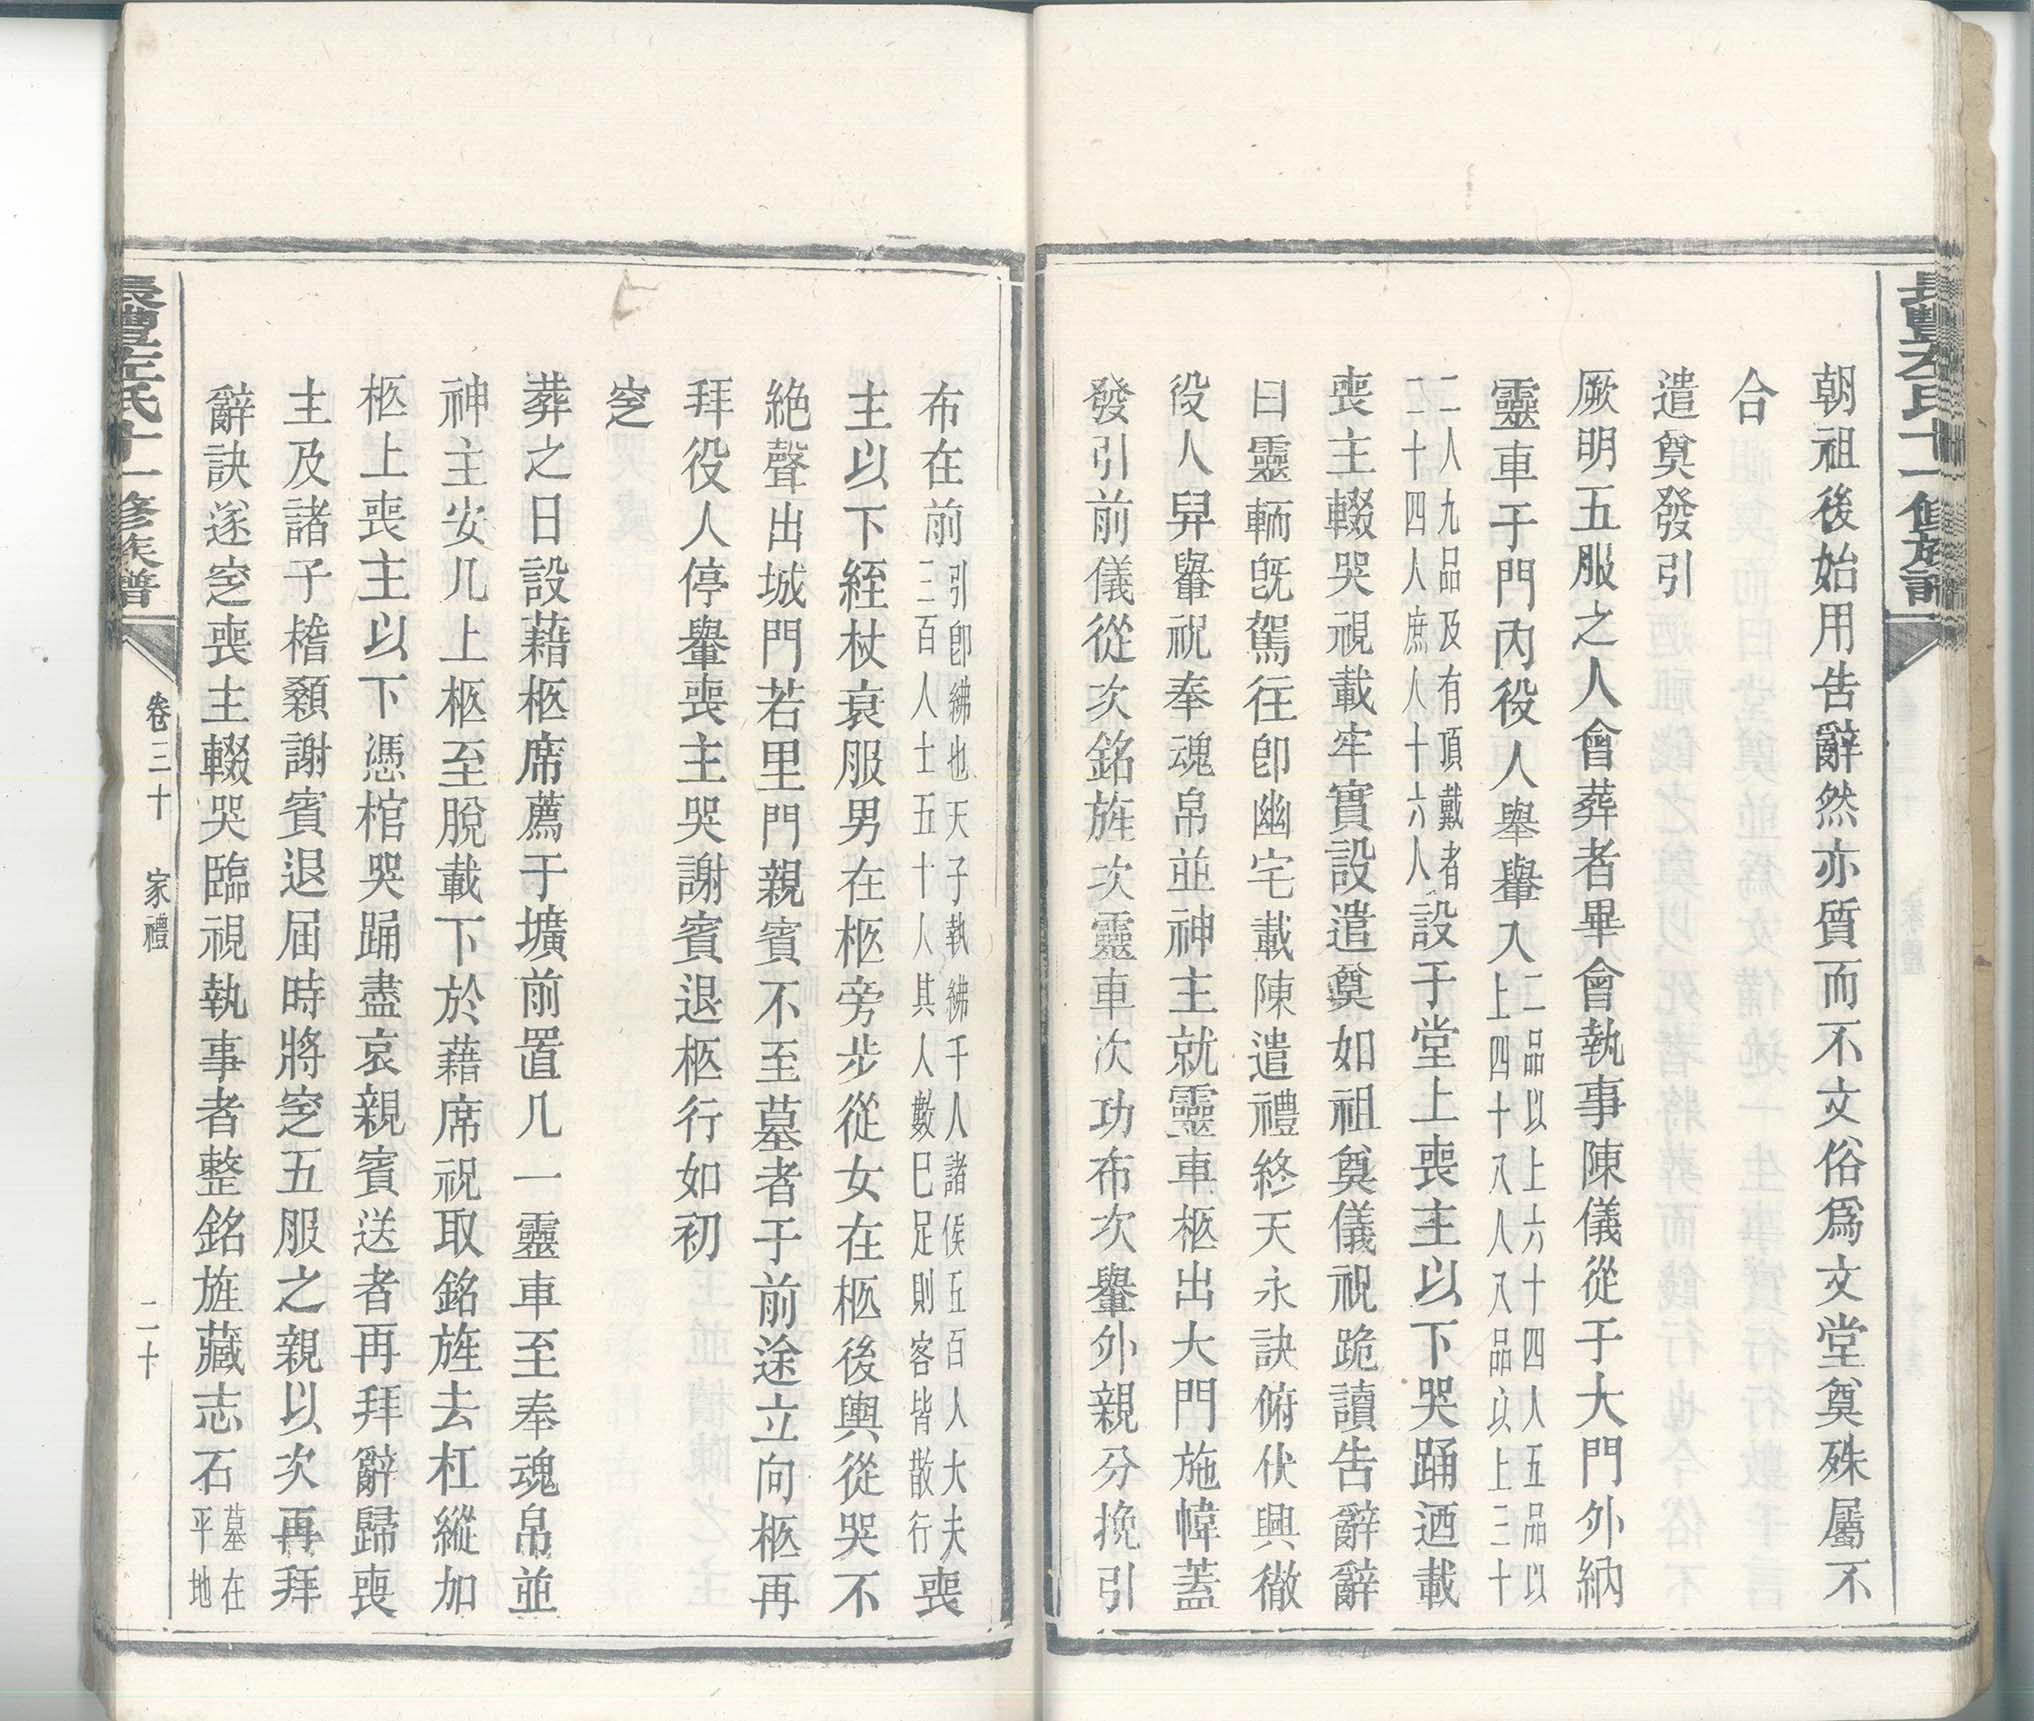 長豐左氏十一修族譜
朝祖後始用告辭然亦質而不文俗爲文堂奠殊屬不
合
遣奠發引
厥明五服之人會葬者畢會執事陳儀從于大門外納
靈車于門內役人舉轝入二品以上六十四人五品以上四十八人八品以上三十二人九品及有頂戴者二十四人庶人十六人
設于堂上喪主以下哭踊迺載
喪主輟哭視載牢實設遣奠如祖奠儀祝跪讀告辭辭
曰靈輀旣駕往卽幽宅載陳遣禮終天永訣俯伏興徹
役人舁轝祝奉魂帛並神主就靈車柩出大門施幃蓋
發引前儀從次銘旌次靈車次功布次轝外親分挽引
布在前引卽紼也天子執紼千人諸侯五百人大夫三百人士五十人其人數已足則客皆散行喪
主以下絰杖衰服男在柩旁步從女在柩後輿從哭不
絕聲出城門若里門親賓不至墓者于前途立向柩再
拜役人停轝喪主哭謝賓退柩行如初
窆
葬之日設藉柩席薦于壙前置几一靈車至奉魂帛並
神主安几上柩至脫載下於藉席祝取銘旌去杠縱加
柩上喪主以下憑棺哭踊盡哀親賓送者再拜辭歸喪
主及諸子稽顙謝賓退屆時將窆五服之親以次再拜
辭訣遂窆喪主輟哭臨視執事者整銘旌藏志石墓在平地
長豐左氏十一修族譜
卷三十 家禮 二十